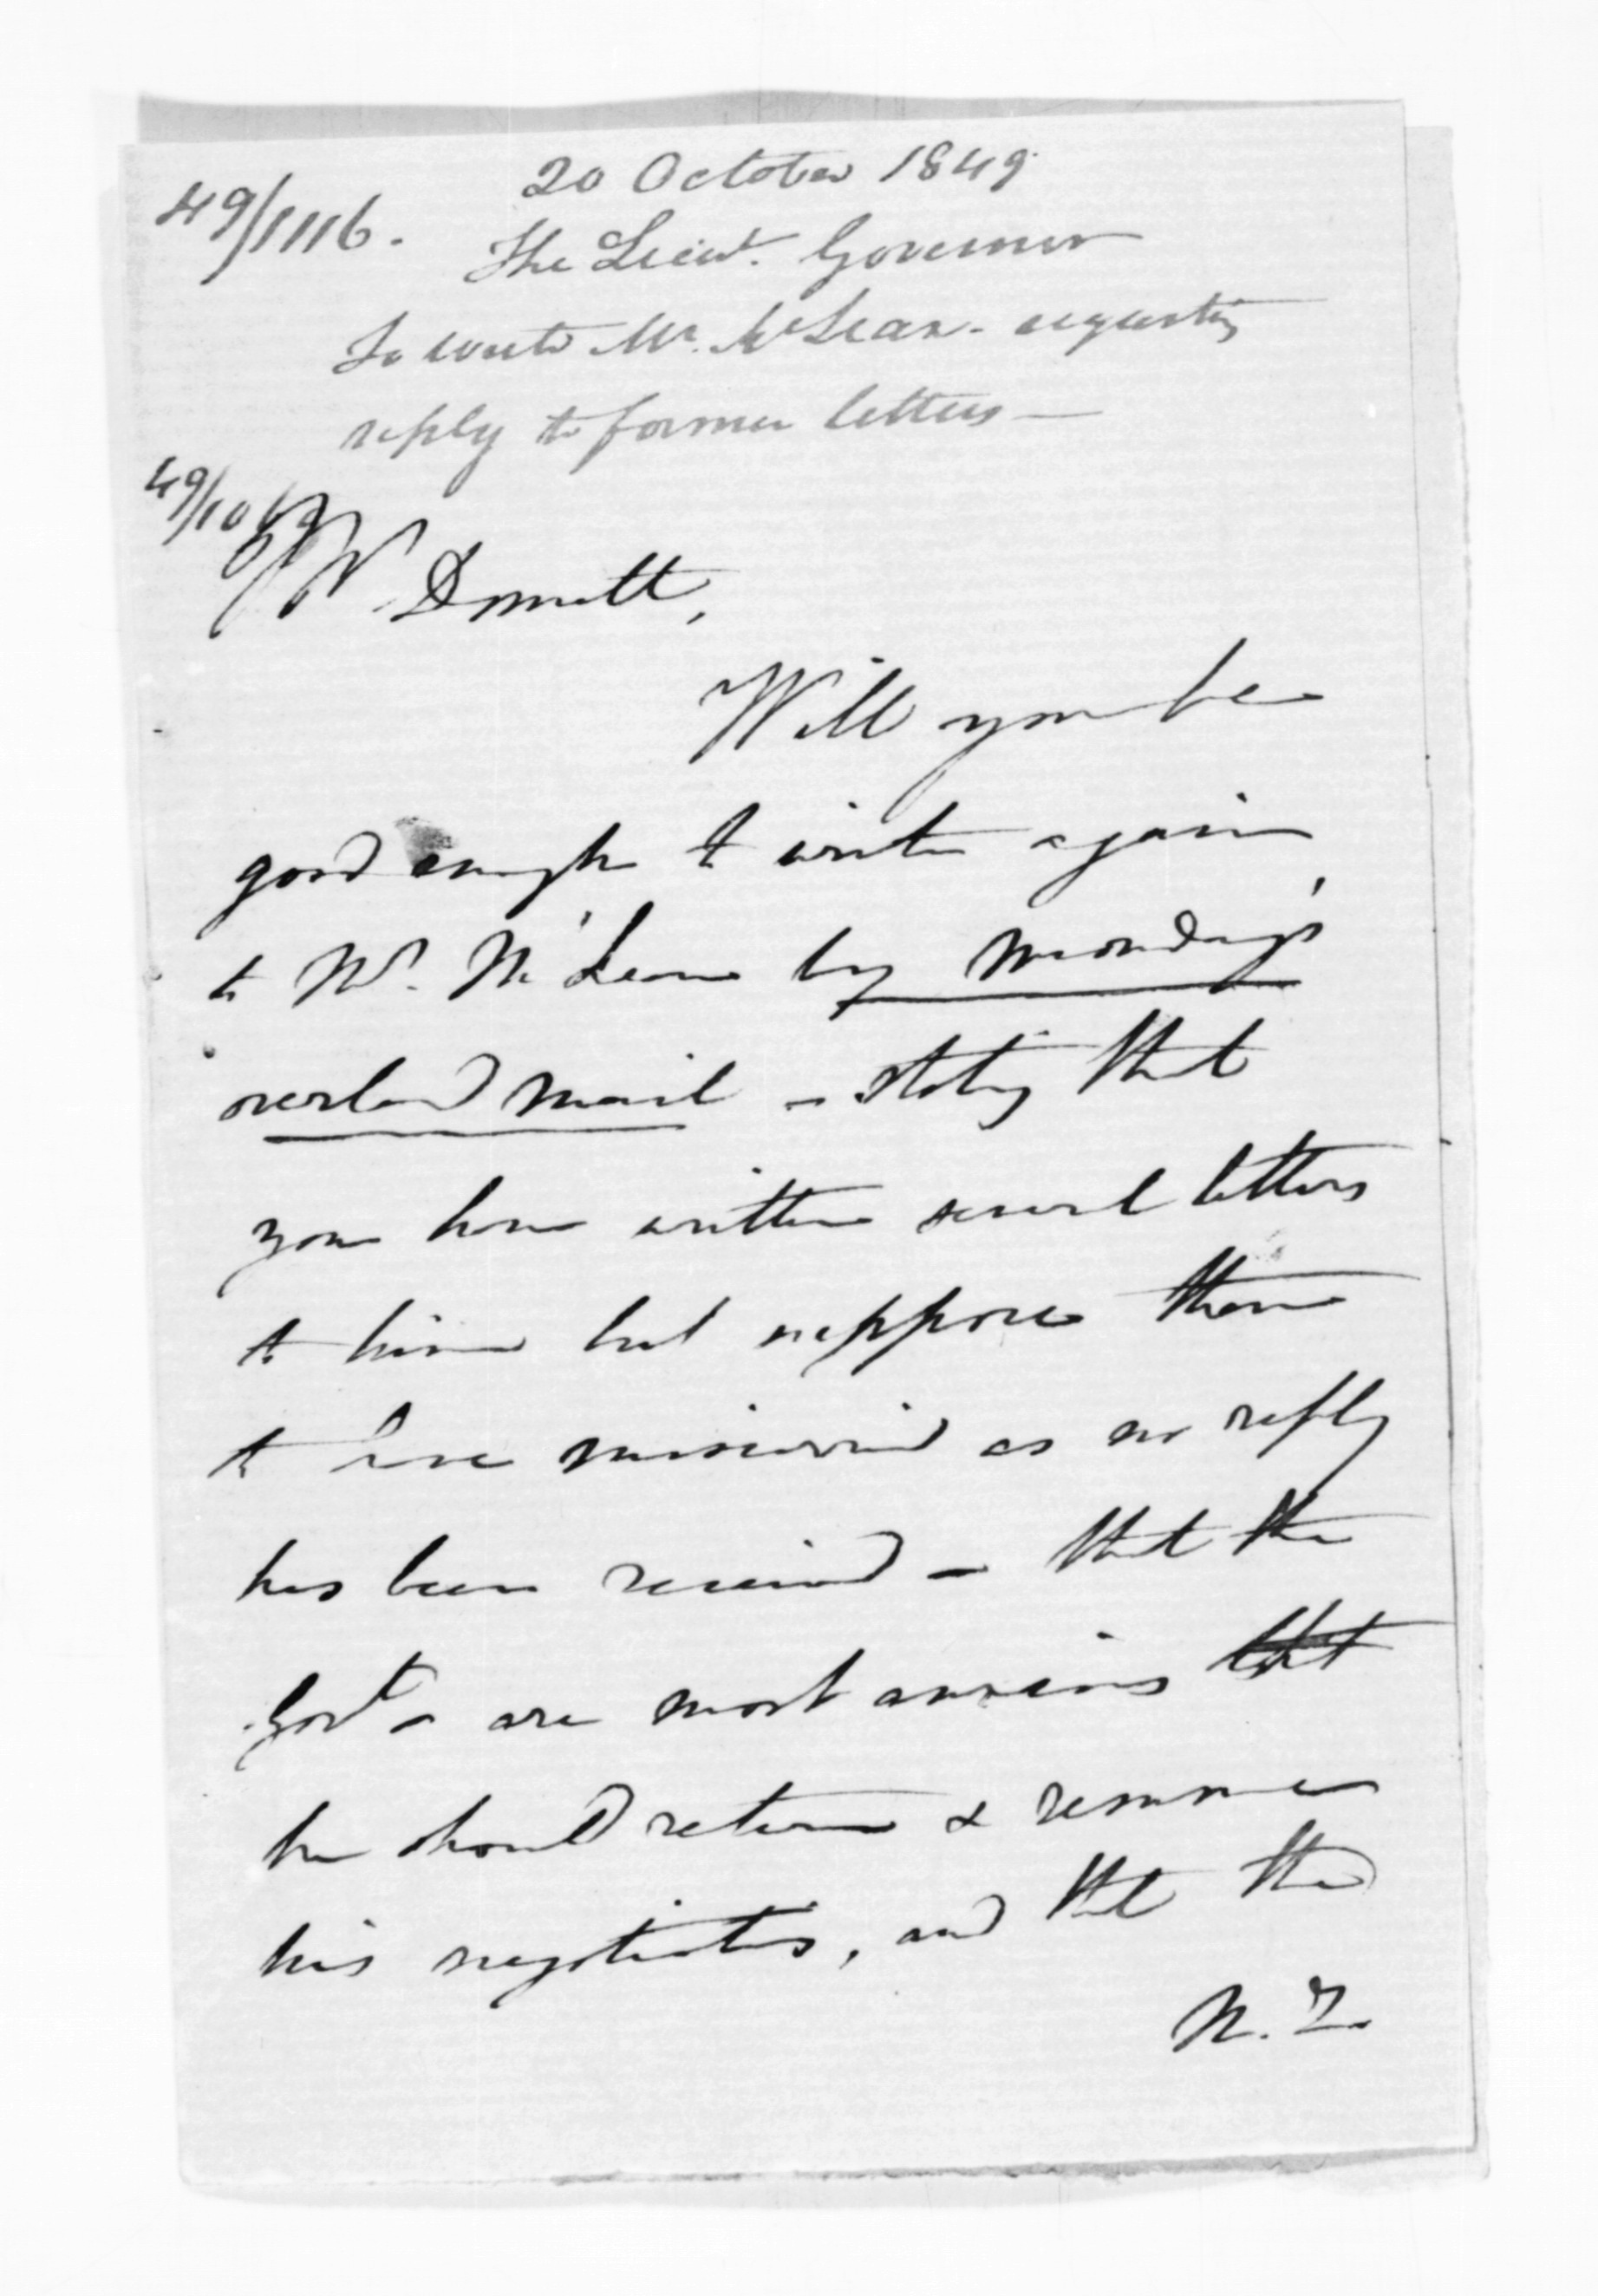 20 October 1849
49/1116.
The Lieut. Governor
To write Mr. McLean - requesting
reply to former letters —
49/1069
Mr Domett,
Will you be
good enough to write again
to Mr. McLean by Monday's
overland mail - stating that
you have written several letters
to him but suppose them
to have miscarried as no reply
has been received - that the
Govt are most anxious that
he should return & resume
his negotiations, and that the
N. Z.